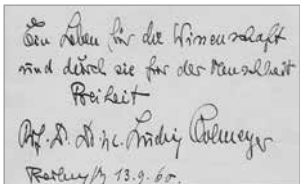 Ein Leben für die Wissenschaft
und durch sie für der Menschheit
Freiheit
Prof. Dr. Dr. h.c. Ludwig
13.9.60.